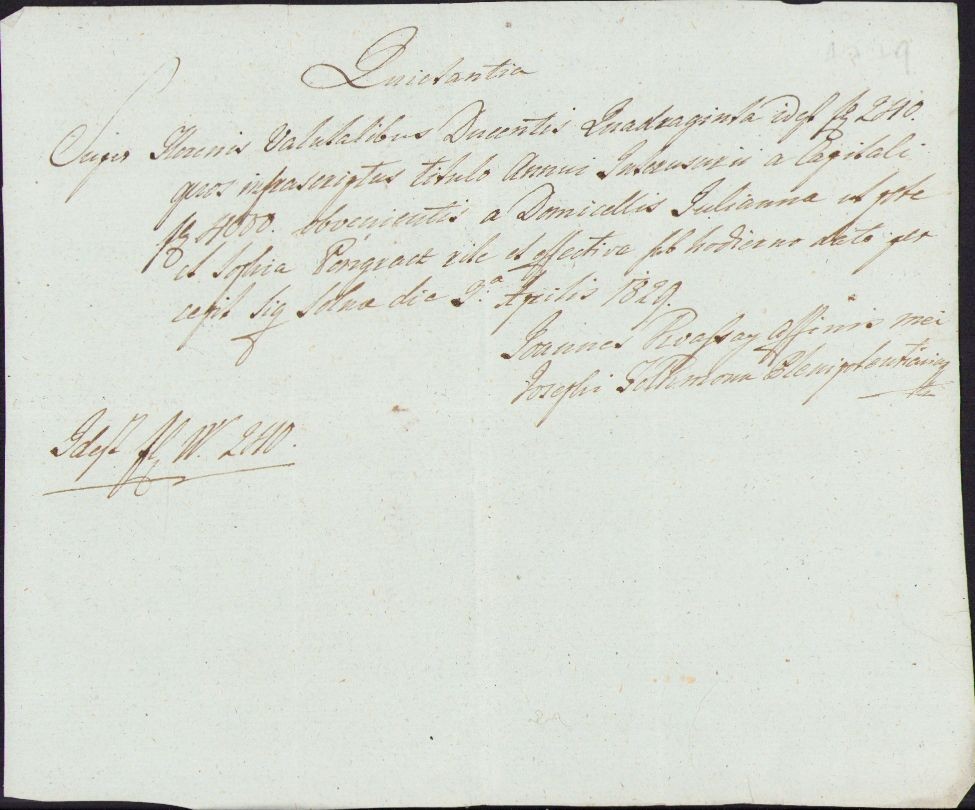 Quietantia
Super Florenis Valutalibus Ducentis Quadraginta idest fl 240.
quos infrascriptus titulo Annui Interusurii a Capitali
fl 4000. obvenientis a Domicellis Julianna et
et Sophia rite et effective sub hodierno dato per
cepi. Sig Solnae die 2.a Aprilis 1829.
Joannes affinis mei
Josephi Plenipotentiarius
Idest fl W. 240.